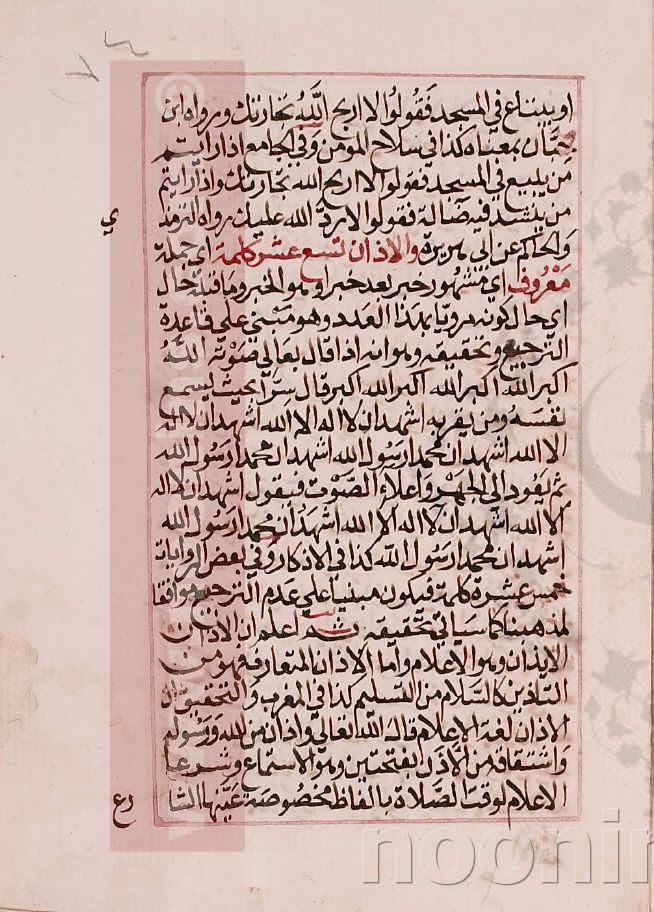 او يبتاع في المسجد فقولوا لا اربح اللّٰه تجارتك ورواه ابن
حبّان بمعناه كذا في سلاح المومن وفي الجامع اذا رايتم
من يبيع في المسجد فقولوا لا اربح الله تجارتك واذا رايتم
من ينشد فيه ضالة فقولوا لا ردّ الله عليك رواه الترمذ
ي
والحاكم عن ابي هريرة والاذان تسع عشر كلمة اي جملة
معروف اي مشهور خبر بعد خبر او هو الخبر وما قبله حال
اي حال كونه مرويا بهذا العدد وهو مبني علي قاعدة
الترجيع وتحقيقه وهو انه اذا قال بعالي صوته الله
اكبر الله اكبر الله اكبر الله اكبر قال سرّا بحيث يسمع
نفسه ومن يقربه اشهد ان لا اله الا الله اشهد ان لا اله
الا الله اشهد ان محمدا رسول الله اشهد ان محمدا رسول الله
ثم يعود الي الجهر واعلاء الصوت فيقول اشهد ان لا اله
الا الله اشهد ان لا اله الا الله اشهد ان محمدا رسول الله
اشهد ان محمدا رسول الله كذا في الاذكار وفي بعض الروايات
خمس عشرة كلمة فيكون مبنيا علي عدم الترجيع موافقا
لمذهبنا كما سياتي تحقيقه ثم اعلم ان الاذان
الايذان وهو الاعلام واما الاذان المتعارف فهو من
التاذين كالسلام من التسليم كذا في المغرب والتحقيق ان
الاذان لغة الاعلام قال الله تعالي واذان من الله ورسوله
واشتقاقه من الأذن بفتحتين وهو الاستماع وشرعا
الاعلام لوقت الصلاة بالفاظ مخصوصة عيّنها الشا
رع
noonin